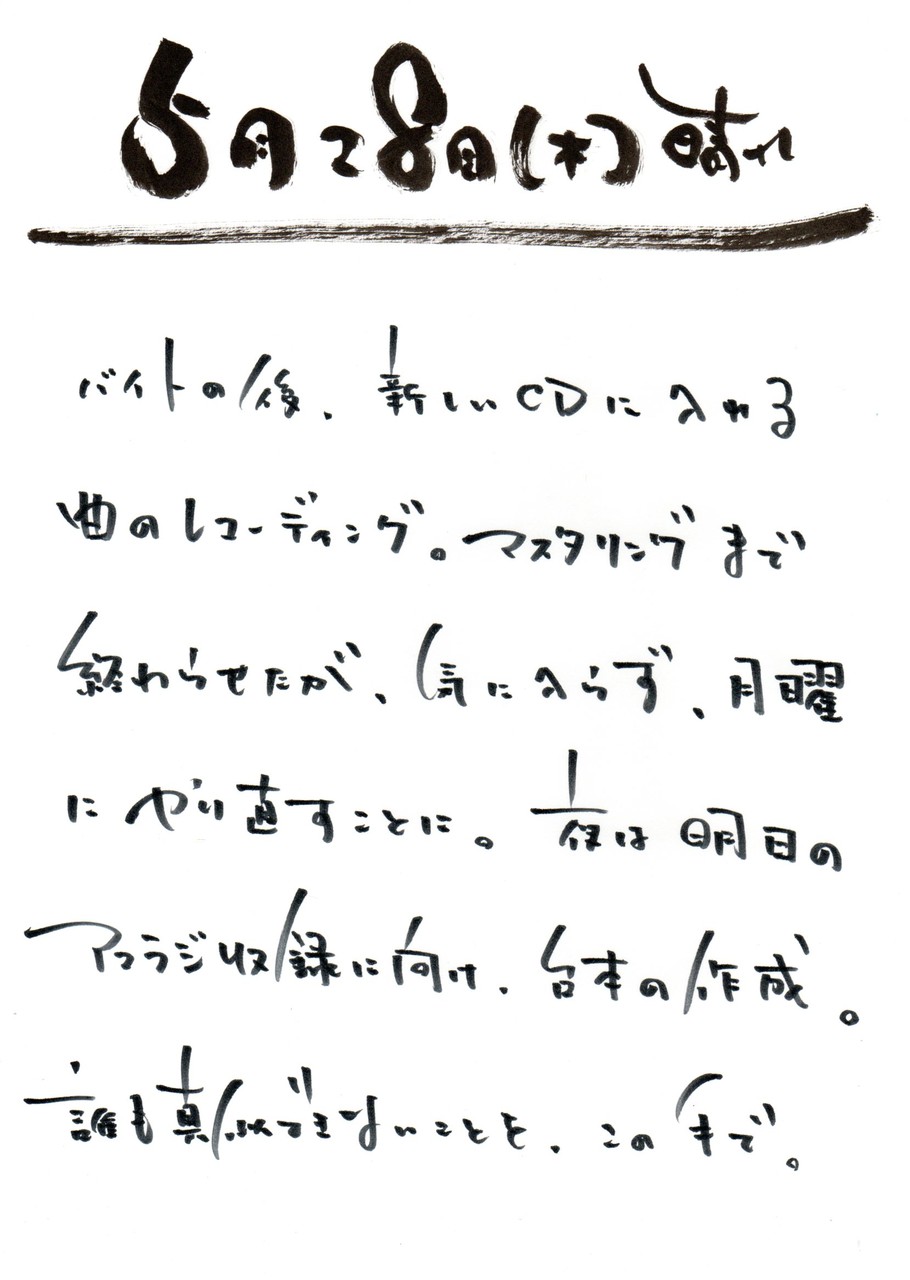 5月28日(木)晴れ
バイトの後、新しいCDに入れる
曲のレコーディング。マスタリングまで
終わらせたが、気に入らず、月曜
にやり直すことに。夜は明日の
アコラジ収録に向け、台本の作成。
誰も真似できないことを、この手で。